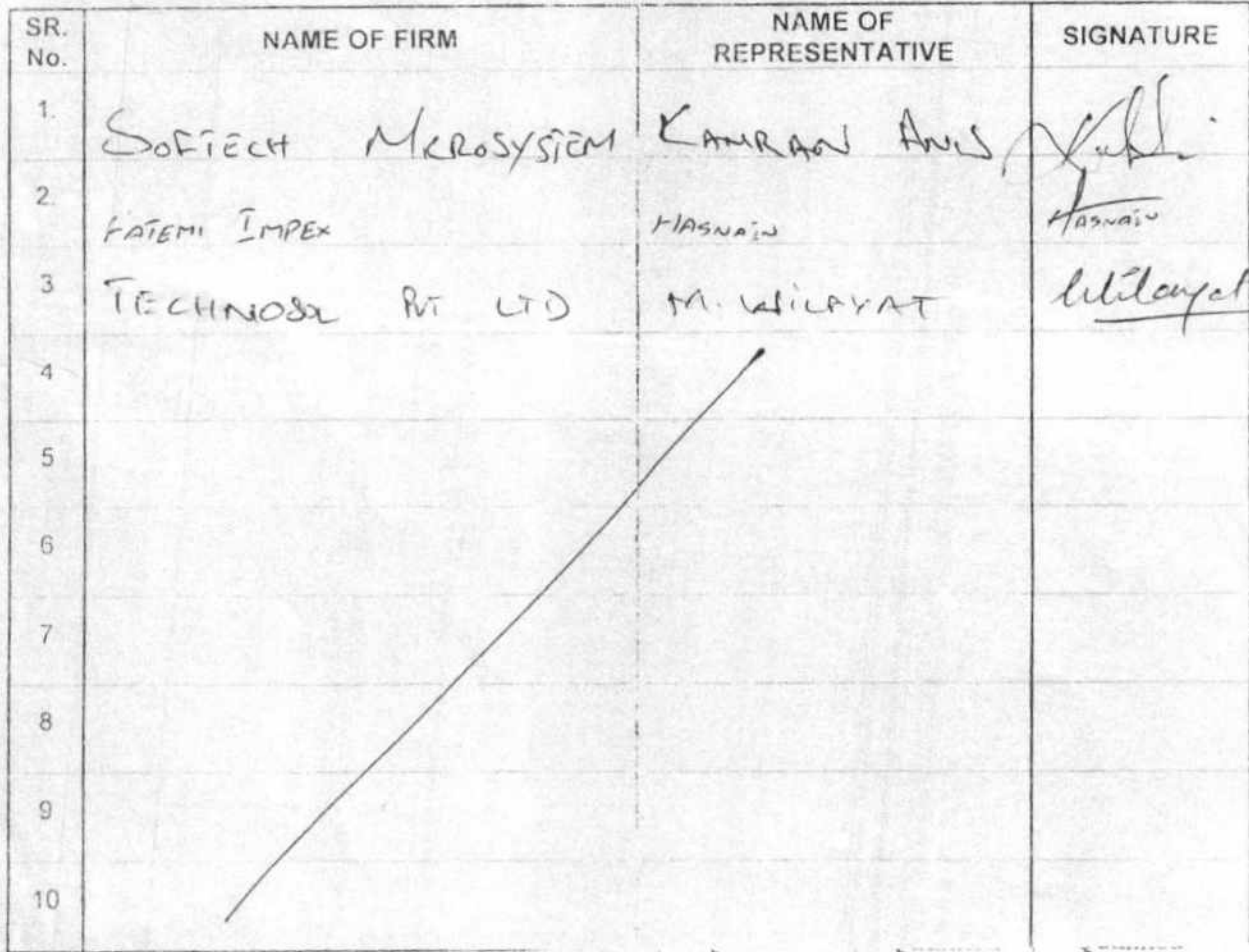 SR. No. NAME OF FIRM NAME OF REPRESENTATIVE SIGNATURE
1. SOFTECH MICROSYSTEM KAMRAN ANIS
2. FATEMI IMPEX HASNAIN HASNAIN
3 TECHNOSOL PVT LTD M. WILAYAT Wilayat
4
5
6
7
8
9
10